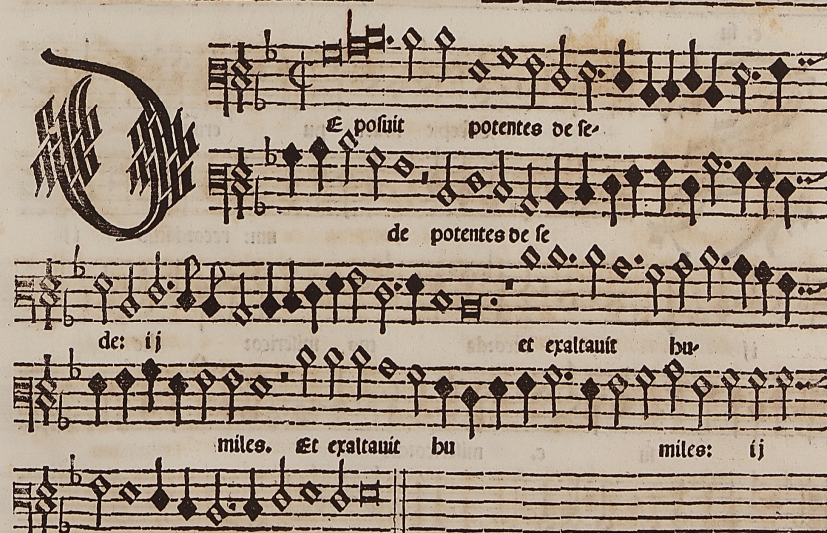 DE posuit potentes de se-
de potentes de se
de: ij et exaltauit hu-
miles. Et exaltauit hu miles: ij